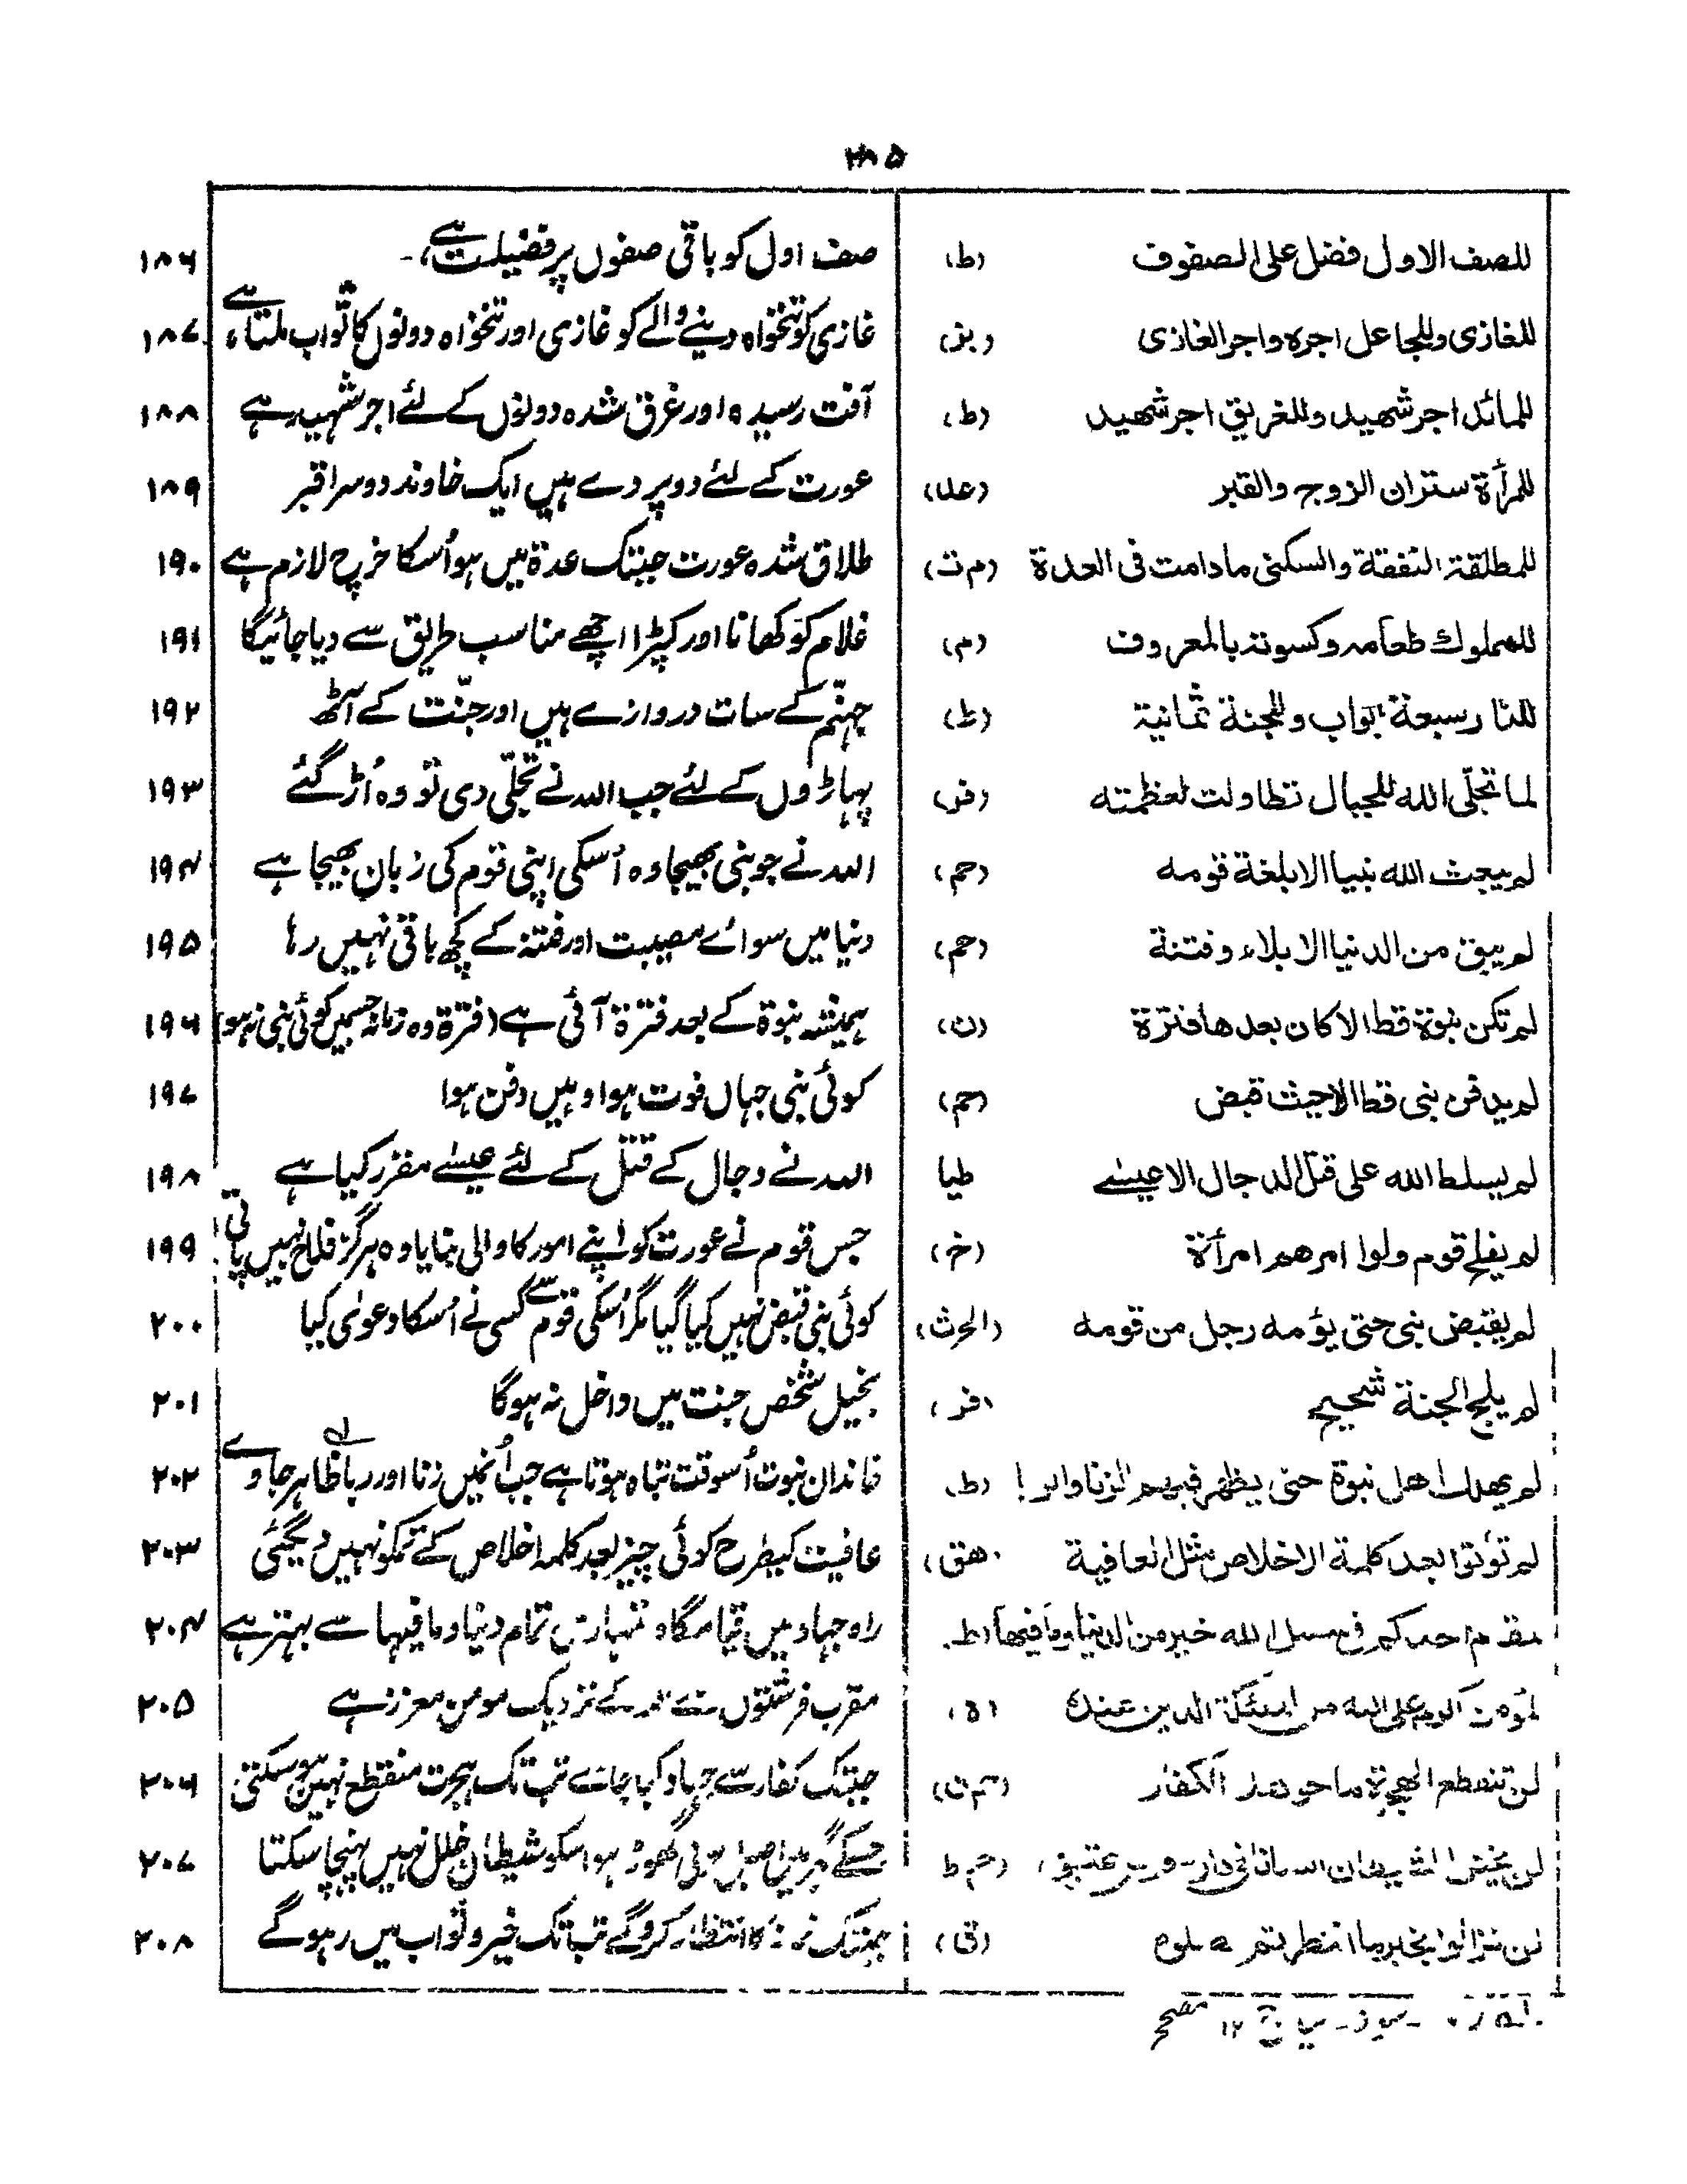 ۲۸۵
للصف الاول فضل على الصفوف (ط) صف اول کو باقی صفوں پر فضیلت ہے ۔ ۱۸۶
للغازی وللجاعل اجره واجر الغازی (بز) غازی کو تنخواہ دینے والے کو غازی اور تنخواہ دونوں کا ثواب ملتا ہے ۱۸۷
للمائد اجر شهید وللغریق اجر شهید (ط) آفت رسیدہ اور غرق شدہ دونوں کے لئے اجر شہید ہے ۱۸۸
للمرأة ستران الزوج والقبر (علا) عورت کے لئے دو پردے ہیں ایک خاوند دوسرا قبر ۱۸۹
للمطلقة النفقة والسکنی مادامت فی العدة (م ت) طلاق شدہ عورت جبتک عدة میں ہو اُسکا خرچ لازم ہے ۱۹۰
للمملوك طعامه وکسوته بالمعروف (م) غلام کو کھانا اور کپڑا اچھے مناسب طریق سے دیا جائیگا ۱۹۱
للنار سبعة ابواب وللجنة ثمانیة (ط) جہنّم کے سات دروازے ہیں اور جنّت کے آٹھ ۱۹۲
لما تجلّی الله للجبال تطاولت لعظمته (فر) پہاڑوں کے لئے جب اللہ نے تجلّی دی تو وہ اُڑ گئے ۱۹۳
لم یبعث الله نبیا الا بلغة قومه (حم) اللہ نے جو نبی بھیجا وہ اُسکی اپنی قوم کی زبان بھیجا ہے ۱۹۴
لم یبق من الدنیا الا بلاء وفتنة (حم) دنیا میں سوائے مصیبت اور فتنہ کے کچھ باقی نہیں رہا ۱۹۵
لم تکن نبوة قط الا کان بعدها فترة (ن) ہمیشہ نبوة کے بعد فترة آئی ہے (فترة وہ زمانہ جسمیں کوئی نبی نہ ہو) ۱۹۶
لم یدفن نبی قط الا حیث قبض (حم) کوئی نبی جہاں فوت ہوا وہیں دفن ہوا ۱۹۷
لم یسلط الله علی قتل الدجال الا عیسٰے طیا اللہ نے دجال کے قتل کے لئے عیسٰے مقرر کیا ہے ۱۹۸
لم یفلح قوم ولوا امرهم امرأة (خ) جس قوم نے عورت کو اپنے امور کا والی بنایا وہ ہرگز فلاح نہیں پاتی ۱۹۹
لم یقبض نبی حتی یؤمه رجل من قومه (الحرث) کوئی نبی قبض نہیں کیا گیا مگر اُسکی قوم سے کسی نے اُسکا دعوٰی کیا ۲۰۰
لم یلج الجنة شحیح (فر) بخیل شخص جنت میں داخل نہ ہوگا ۲۰۱
لم یهلك اهل نبوة حتی یظهر فیهم الزنا والربا (ط) خاندان نبوت اُسوقت تباہ ہوتا ہے جب اُنمیں زنا اور ربا ظاہر ہو جاوے ۲۰۲
لم تؤتوا بعد کلمة الاخلاص مثل العافیة (هق) عافیت کیطرح کوئی چیز بعد کلمہ اخلاص کے تمکو نہیں دیگئی ۲۰۳
مقام احدکم فی سبیل الله خیر من الدنیا وما فیها (ط) راہ جہاد میں قیامگاہ تمہاری تمام دنیا و مافیہا سے بہتر ہے ۲۰۴
(ہ) مقرب فرشتوں سے کے نزدیک مومن معزز ہے ۲۰۵
لن تنقطع الهجرة ما جوهد الکفار جبتک کفار سے جہاد کیا جائے تب تک ہجرت منقطع نہیں ہو سکتی ۲۰۶
گھوڑا ہو اسکو شیطان خلل نہیں پہنچا سکتا ۲۰۷
لن تزالوا بخیر ما انتظرتم صلوه (ق) کا انتظار کروگے تب تک خیر و ثواب میں رہوگے ۲۰۸
۱۲ مصحح